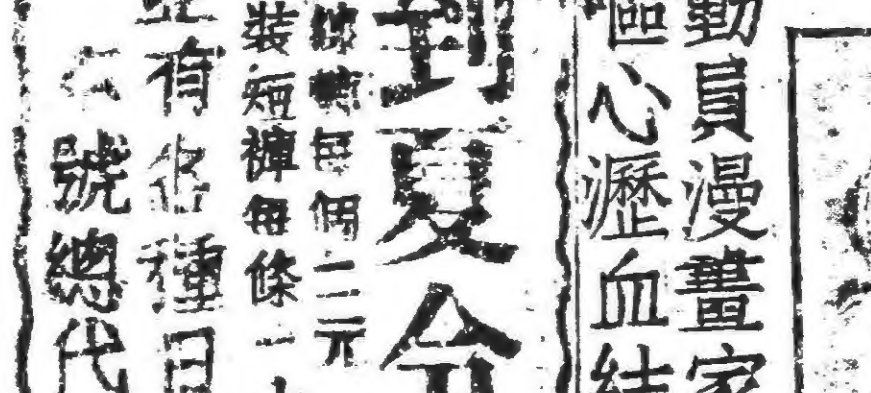 勤員漫畫家
嘔心瀝血結
到夏令
每個二元
裝短褲每條一
有各種日
號總代